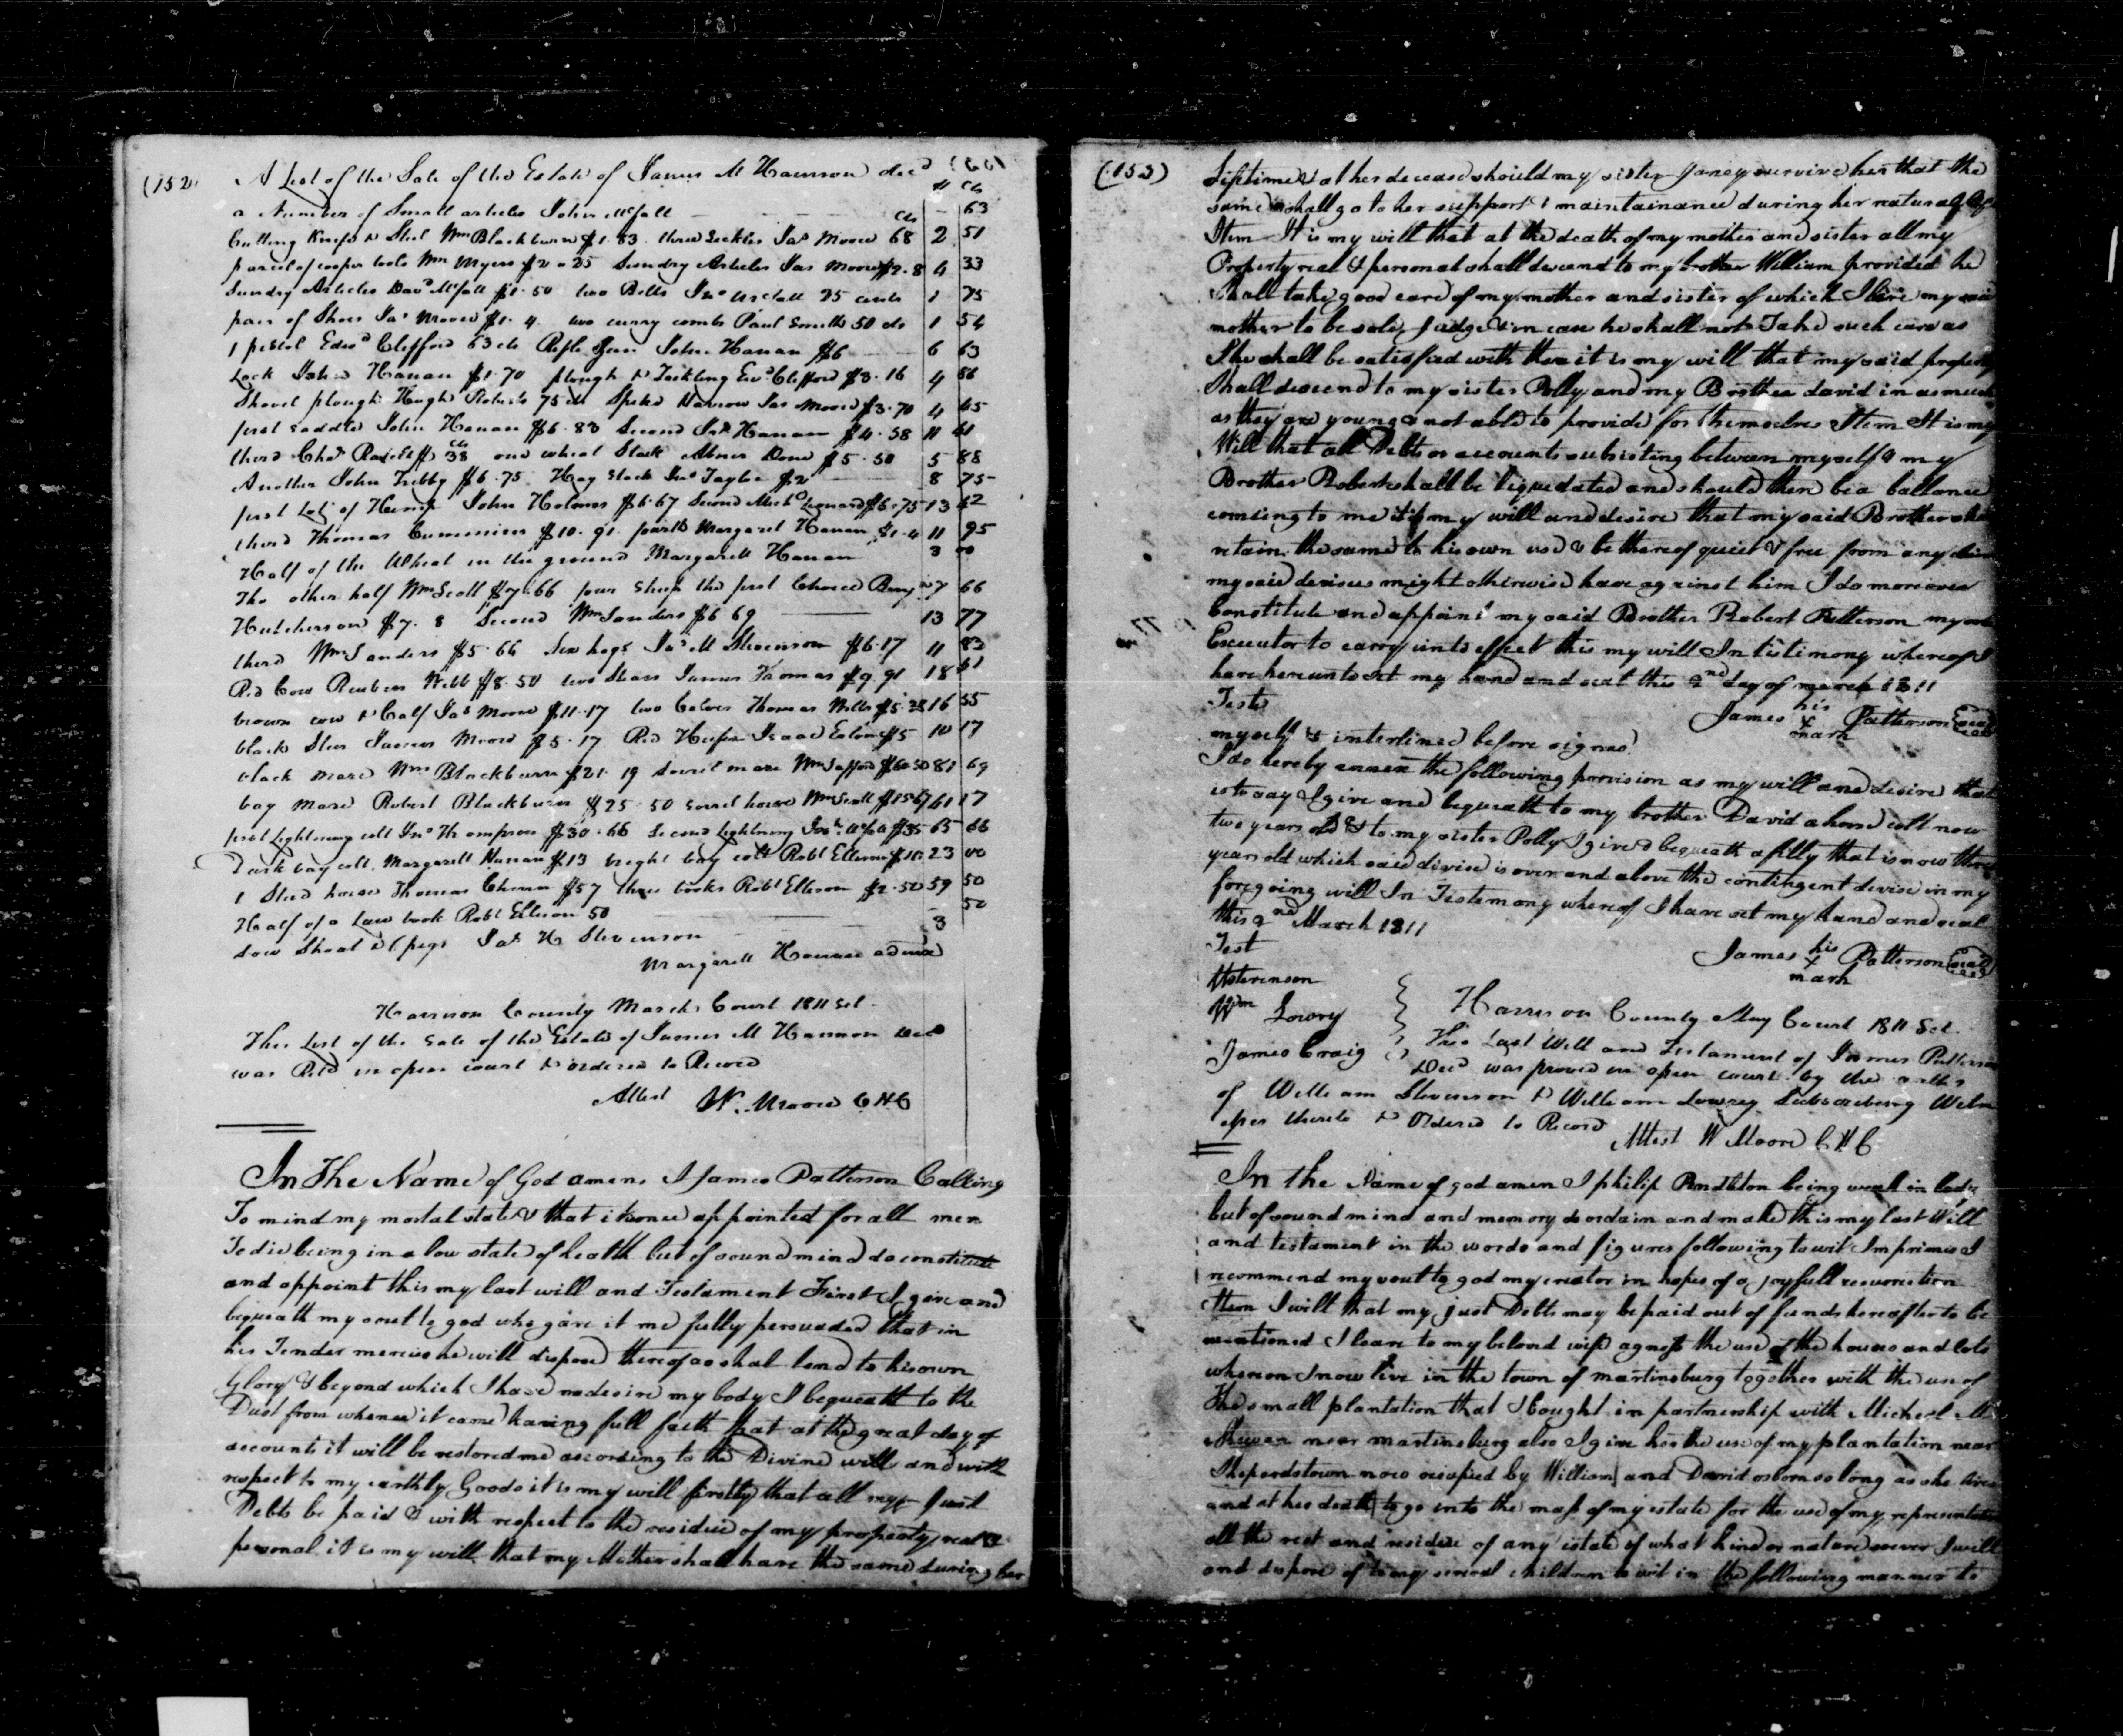 (152) A List of the Sale of the Estate of James M Hannon decd
$ cts
a Number of Small articles John McFall — 63
Cutting Knife & Steel Wm Blackburn $1.83 three Sickles Jas Moore 68 cts 2 51
parcel of cooper tools Wm Myers $2.25 Sundry Articles Jas Moore $2.8 4 33
Sundry Articles Davd McFall $1.50 two Bells Jno McFall 25 cents 1 75
pair of Shoes Jas Moore $1.4 two curry combs Paul Smith 50 cts 1 54
1 pistol Edwd Clifford 63 cts Rifle Gun John Hanan $6 6 63
Lock John Hanan $1.70 plough & Tackling Edwd Clifford $3.16 4 86
Shovel plough Hugh Roberts 75 cts Spiked Harrow Jas Moore $3.70 4 45
first saddle John Hanan $6.83 Second Jas Hanan $4.58 11 41
third Chas 38 cts one wheat Stack Abner Done $5.50 5 88
Another John Trebby $6.75 Hay Stack Jno Taylor $2 8 75
first Lot of Hemp John Holmes $6.67 Second Michl Leonard $6.75 13 42
third Thomas Cummins $10.91 fourth Margaret Hanan $1.4 11 95
Half of the Wheat in the ground Margarett Hanan 3 00
The other half Wm Scott $7.66 four Sheep the first Choice Benj 7 66
Hutcherson $7.8 Second Wm Sanders $6 69 13 77
third Wm Sanders $5.66 Six hogs Jas M Stevenson $6.17 11 83
Red Cow Reuben Webb $8.50 two Steers James Thomas $9.91 18 41
brown cow & Calf Jas Moore $11.17 two Calves Thomas Wells $5.38 16 55
black Steer James Moore $5.17 Red Heifer Isaac Eaton $5 10 17
black mare Wm Blackburn $21.19 Sorrel mare Wm $60.50 81 69
bay Mare Robert Blackburn $25.50 sorrel horse Wm Scott $15.67 41 17
first Lightning colt Jno Thompson $30.66 Second Lightning $35 65 66
Dark bay colt Margarett Hanan $13 bright bay colt Robt Ellison $10 23 00
1 Stud horse Thomas $57 three books Robt Ellison $2.50 59 50
Half of a Law book Robt Ellison 50 — 50
Sow Shoat & 6 pigs Jas M Stevenson 3
Margarett Hanan admx
Harrison County March Court 1811 Sct.
This List of the Sale of the Estate of James M Hannon decd
was Retd in open court & ordered to Record
Attest W. Moore CHC
In The Name of God amen I James Patterson Calling
To mind my mortal state & that it is once appointed for all men
To die being in a low state of health but of sound mind do constitute
and appoint this my last will and Testament First I give and
bequeath my soul to god who gave it me fully persuaded that in
his Tender mercies he will dispose thereof as shal tend to his own
Glory & beyond which I have no desire my body I bequeath to the
Dust from whence it came having full faith that at the great day of
accounts it will be restored me according to the Divine will and with
respect to my earthly Goods it is my will firstly that all my Just
Debts be paid & with respect to the residue of my property real &
personal it is my will that my Mother shall have the same during her
(153) lifetime & at her decease should my sister Janey survive her that the
same shall go to her support & maintainance during her natural life
Item It is my will that at the death of my mother and sister all my
Property real & personal shall descend to my brother William provided he
Shall take good care of my mother and sister of which I leave my said
mother to be sole Judge & in case he shall not Take such care as
She shall be satisfied with then it is my will that my said property
Shall descend to my sister Polly and my Brother david in as much
as they are young & not able to provide for themselves Item It is my
Will that all Debts or accounts subsisting between myself & my
Brother Robert shall be liquidated and should there be a ballance
comeing to me it is my will and desire that my said Brother shall
retain the same to his own use & be thereof quiet & free from any claim
my said devisees might otherwise have against him I do moreover
Constitute and appoint my said Brother Robert Patterson my sole
Executor to carry into effect this my will In testimony whereof I
have hereunto set my hand and seal this 2nd day of march 1811
Teste
James his x mark Patterson seal
myself & interlined before signed
I do hereby annex the following provision as my will and desire that
is to say I give and bequeath to my brother David a horse colt now
two years old & to my sister Polly I give & bequeath a filly that is now three
years old which said devise is over and above the contingent devise in my
foregoing will In Testemony whereof I have set my hand and seal
this 2nd March 1811
Test
James his x mark Patterson seal
Wstevenson
Wm Lowry
James Craig
Harrison County May Court 1811 Sct.
This Last Will and Testament of James Patterson
Decd was proved in open court by the oaths
of William Stevenson & William Lowrey Subscribing Witn
esses thereto & Ordered to Record
Attest W Moore C H C
In the Name of god amen I philip Pendleton being weak in body
but of sound mind and memory do ordain and make this my last Will
and testament in the words and figures following to wit Imprimis I
recommend my soul to god my creator in hopes of a joyfull resurrection
Item I will that my just Debts may be paid out of funds hereafter to be
mentioned I leave to my beloved wife agness the use of the houses and lots
whereon I now live in the town of martinsburg together with the use of
The small plantation that I bought in partnership with Michael Mc
near martinsburg also I give her the use of my plantation near
Shepardstown now occupied by William and David osborn so long as she lives
and at her death to go into the mass of my estate for the use of my representatives
all the rest and residue of my estate of what kind or nature soever I will
and dispose of to my several children to wit in the following manner to